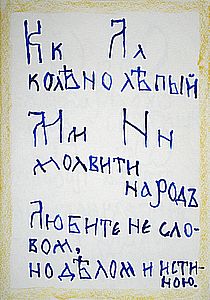 Кк Лл
колѣно лѣпый
Мм Нн
молвити
народъ
Любите не сло-
вом,
но дѣлом и исти-
ною.